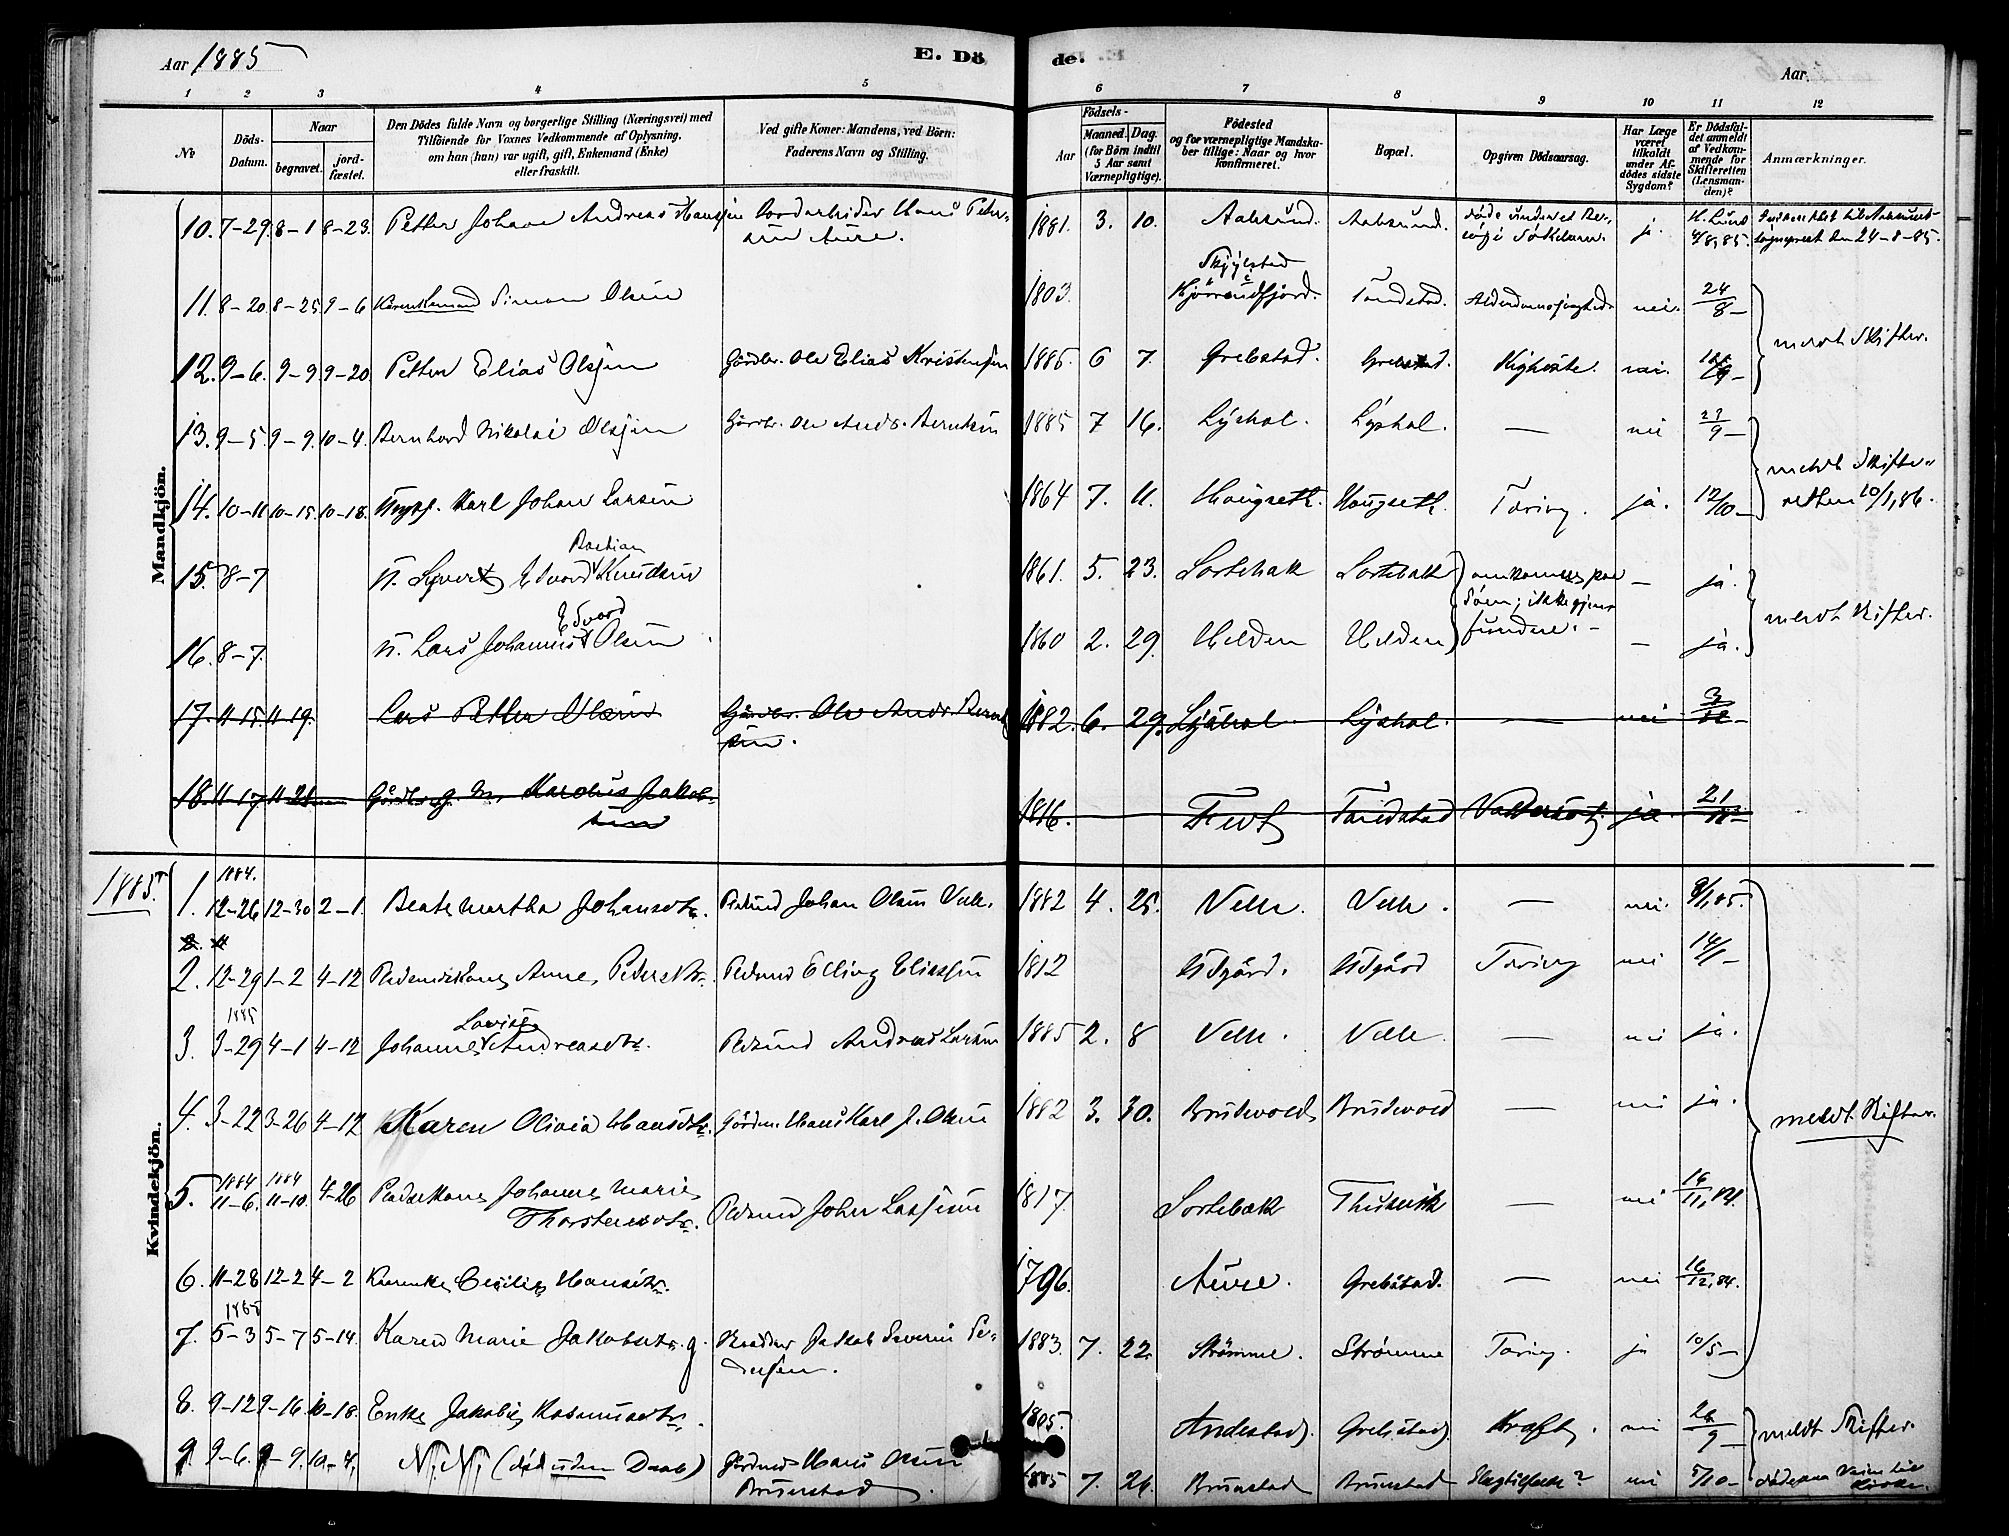 Aar 1885
E. Dö de.
Aar
1 2 3 4 5 6 7 8 9 10 11 12
No
Döds-Datum.
Naar
begravet.
jord-fæstet.
Den Dödes fulde Navn og borgerlige Stilling (Næringsvei) med
Tilföiende for Voxnes Vedkommende af Oplysning,
om han (hun) var ugift, gift, Enkemand (Enke)
eller fraskilt.
Ved gifte Koner: Mandens, ved Börn:
Faderens Navn og Stilling.
Födsels-
Aar
Maaned. Dag.
(for Börn indtil
5 Aar samt
Værnepligtige).
Födested
og for værnepligtige Mandska-
ber tillige: Naar og hvor
konfirmeret.
Bopæl.
Opgiven Dödsaarsag.
Har Læge
været
tilkaldt
under Af-
dödes sidste
Sygdom?
Er Dödsfal-
det anmeldt
af Vedkom-
mende for
Skifteretten
(Lensman-
den)?
Anmærkninger.
Mandkjön.
10. 7-29. 8-1 8-23. Petter Johan Andreas Hanssen Hans Peter-
sen Aure. 1881. 3. 10. Aalesund. Aalesund. ja.
11. 8-20. 8-25 9-6 Simon Olsen 1803. Skylstad
Hjörendfjord. Tandstad. nei. 24/8-
12. 9-6. 9-9 9-20 Petter Elias Olsen Gårdbr. Ole Elias Kristensen 1885 6 7. Grebstad. Grebstad. Kighoste. nei.
meldt Skifter.
13. 9-5. 9-9. 10-4. Bernhard Nikolai Olsen Gårdbr. Ole Ands. Berntsen 1885 7 16. Lyshol. Lyshol. — nei
14. 10-11 10-15. 10-18. Ungkf. Karl Johan Larsen 1864 7. 11. Haugseth. Haugseth. Tæring. ja. 12/10-
meldt Skifte-
retten 10/1, 86.
15. 8-7 U. Syvert Edvard Bastian Knudsen 1861. 5. 23. Sortehak Sortehak omkommet paa
Söen; ikke gjen-
funden. — ja.
16. 8-7. U. Lars Johannes Edvard Olsen 1860 2. 29. Velden Velden — ja.
meldt Skifter.
17. 11-15. 11-19. Lars Petter Olsen Gårdbr. Ole Ands Bernt-
sen. 1882. 6. 29. Lyshol Lyshol. — nei 3/12-
18. 11-17 11-21 Gårdbr. g. M. Karolus Jakob-
sen 1816. Tandstad Vattersot. ja. 21/11-
1885.
Kvindekjön.
1. 1884. 12-26 12-30 2-1. Beate Martha Johansdtr. Pladsmd Johan Olsen Velle. 1882 4. 25. Velle. Velle. — nei. 8/1, 85.
2. 12-29 1-2 4-12 Anne Pedersdtr. Pladsmd Elling Eliassen 1812 Udgård. Udgård Tæring nei 14/1-
3. 1885 3-29 4-1 4-12 Johanne Lovise Andreasdtr. Pladsmd Andreas Larsen 1885 2. 8 Velle. Velle — nei ja.
4. 3-22 3-26 4-12 Karen Olivia Hansdtr. Gårdm. Hans Karl J. Olsen 1882 3. 30. Brudevold Brudevold — nei ja.
meldt Skifter.
5. 1884 11-6. 1884 11-10. 4-26 Pladsekone Johanne Marie
Thorstensdtr. Pladsmd John Lassesen 1817. Sortebæk — nei 16/11, 84.
6. 11-28 12-2 4-2 Cecilie Hansdtr. 1796. Aure. Grebstad. — nei 16/12, 84.
7. 1885 5-3 5-7 5-14. Karen Marie Jakobsdtr. g. Jakob Severin Pe-
dersen. 1883. 7. 22. Strömme. Strömme Tæring. ja 10/5-
8. 9-12 9-16. 10-18. Enke Jakobie Rasmusdtr. 1805. Andestad. Grebstad. Kraft. nei 26/9-
meldt Skifter.
9. 9-6. 9-9. 10-4. N. N. (död uden Daab) Gårdmd Hans Olsen
Bruunstad. 1885 7. 26. Bruunstad Bruunstad Slagtilfælde? nei 5/10-